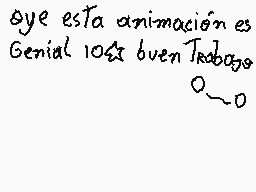 oye esta animación es
Genial 10☆ buen Trabajo